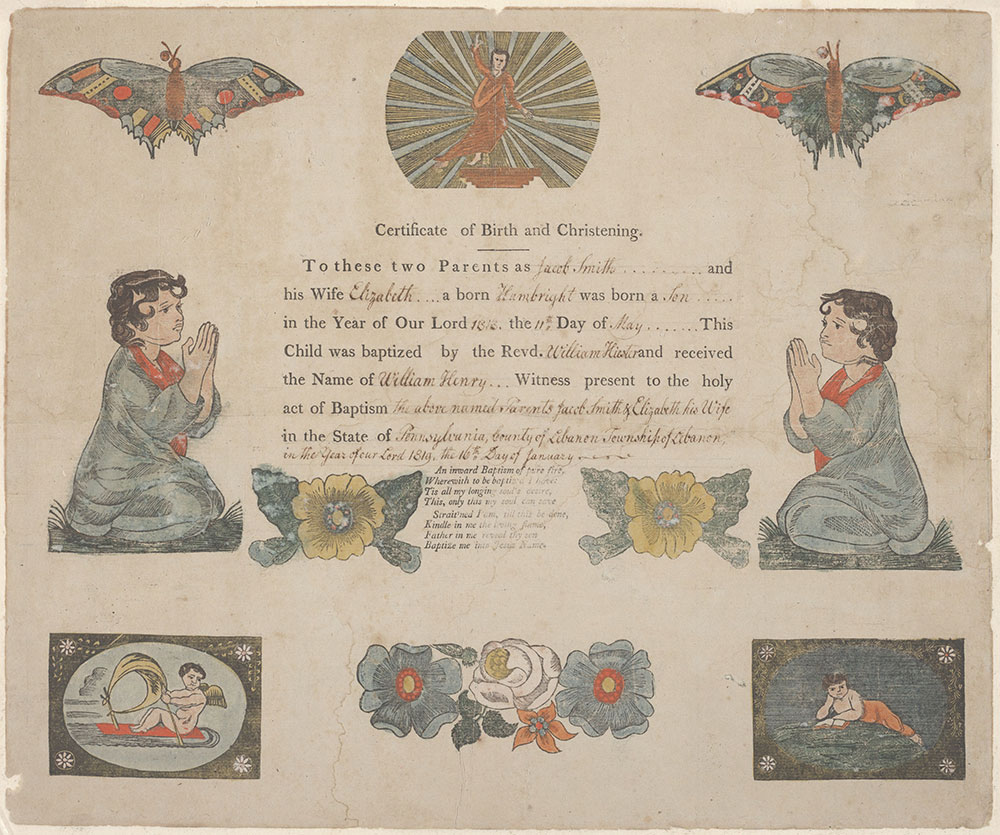 Certificate of Birth and Christening.
To these two Parents as Jacob Smith . . . . . . . . . and
his Wife Elizabeth . . . . a born Hambright was born a Son . . . . .
in the Year of Our Lord 1818. the 11th Day of May . . . . . . . This
Child was baptized by the Revd. William and received
the Name of William Henry . . . Witness present to the holy
act of Baptism the above named Parents Jacob Smith & Elizabeth his Wife
in the State of Pennsylvania, County of Lebanon Township of Lebanon,
in the Year of our Lord 1819, the 16th Day of January
An inward Baptism of pure fire,
Wherewith to be baptiz'd I have:
'Tis all my longing soul's desire,
This, only this my soul can save
Strait'ned I am, till this be done,
Kindle in me the living flame,
Father in me reveal thy son
Baptize me into Jesus Name.